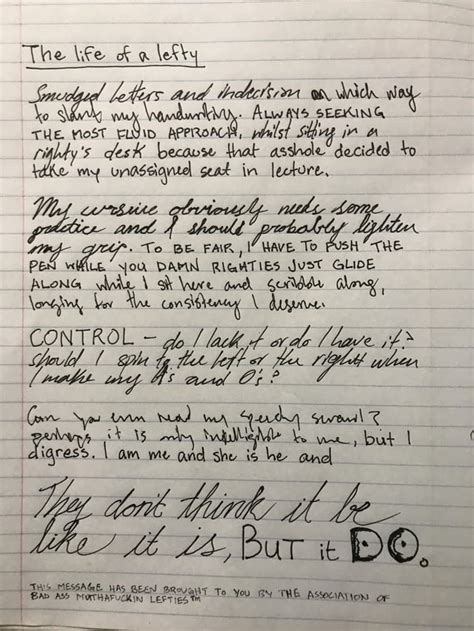 The life of a lefty
Smudged letters and indecision on which way
to slant my handwriting. ALWAYS SEEKING
THE MOST FLUID APPROACH, whilst sitting in a
righty's desk because that asshole decided to
take my unassigned seat in lecture.
My cursive obviously needs some
practice and I should probably lighten
my grip. TO BE FAIR, I HAVE TO PUSH THE
PEN WHILE YOU DAMN RIGHTIES JUST GLIDE
ALONG while I sit here and scribble along,
longing for the consistency I deserve.
CONTROL – do I lack it or do I have it?
should I spin to the left or the right when
I make my A's and O's?
Can you even read my speedy scrawl?
perhaps it is only intelligible to me, but I
digress. I am me and she is he and
They don't think it be
like it is, BUT it DO.
THIS MESSAGE HAS BEEN BROUGHT TO YOU BY THE ASSOCIATION OF
BAD ASS MUTHAFUCKIN LEFTIES™